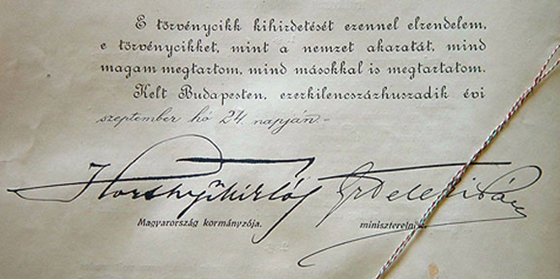 E törvénycikk kihirdetését ezennel elrendelem,
e törvénycikket, mint a nemzet akaratát, mind
magam megtartom, mind másokkal is megtartatom.
Kelt Budapesten, ezerkilencszázhuszadik évi
szeptember hó 24. napján.-
Horthy Miklós
Magyarország kormányzója.